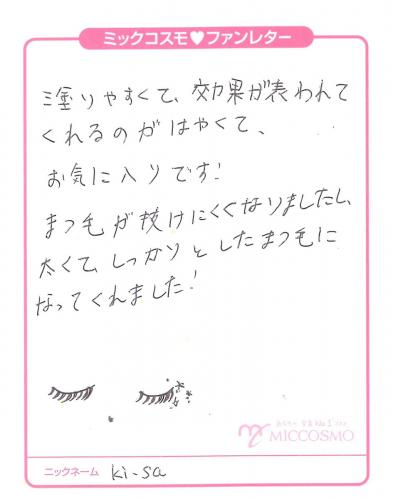 ミックコスモ♥ファンレター
塗りやすくて、効果が表われて
くれるのがはやくて、
お気に入りです!
まつ毛が抜けにくくなりましたし、
太くて、しっかりとしたまつ毛に
なってくれました!
MICCOSMO
ニックネーム ki-sa